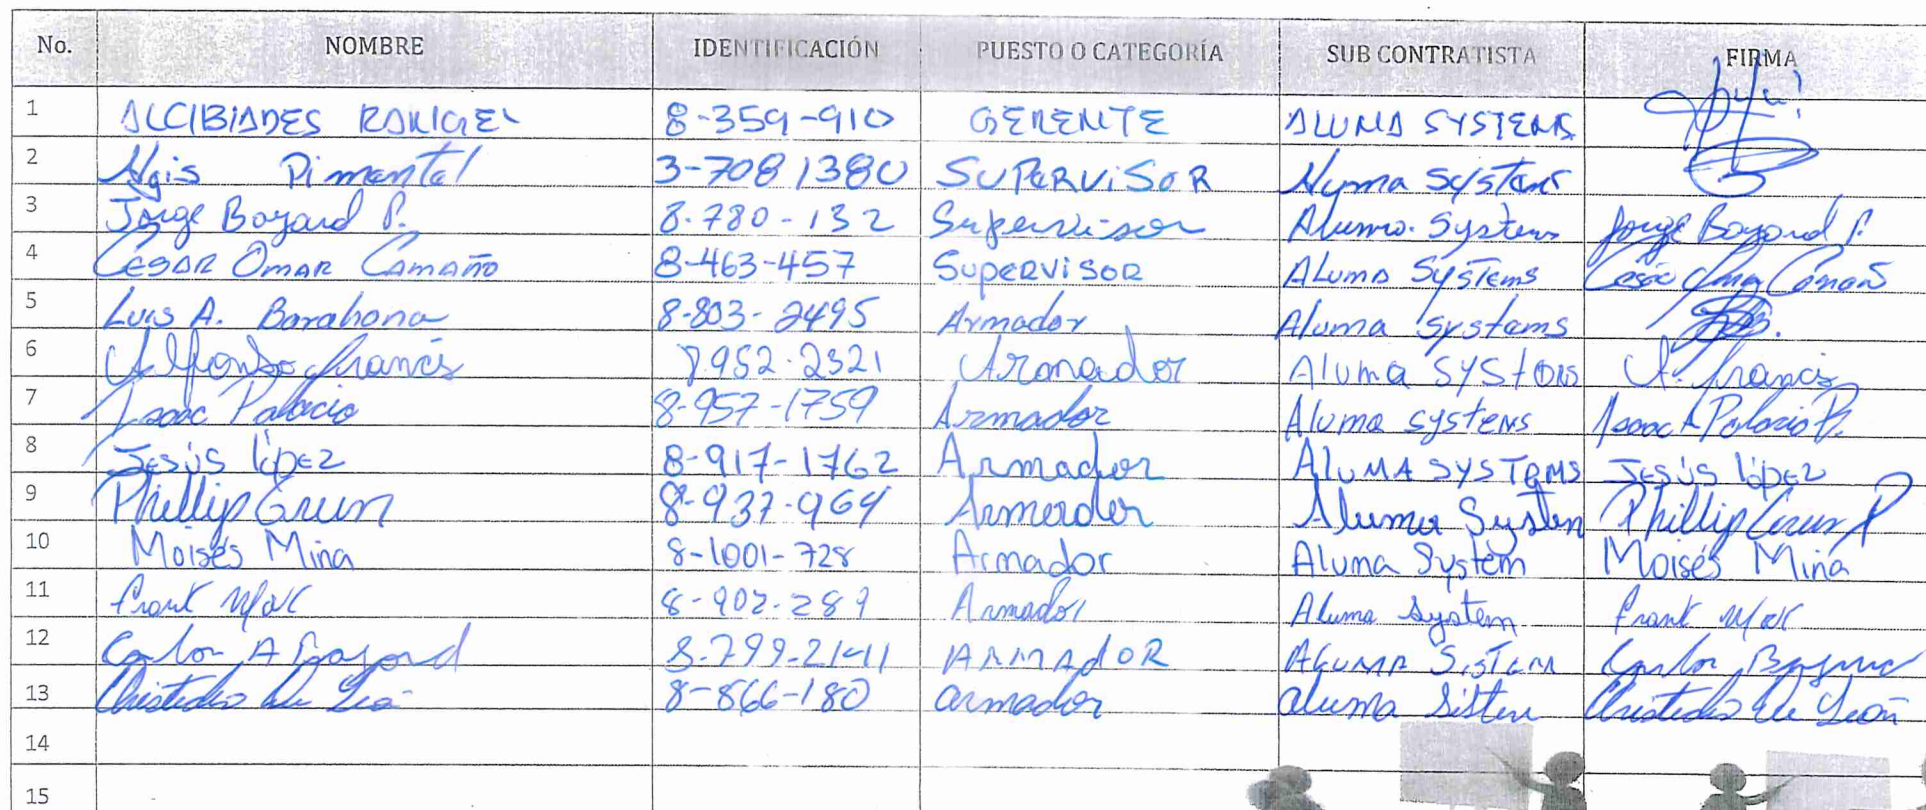 No. NOMBRE IDENTIFICACIÓN PUESTO O CATEGORÍA SUB CONTRATISTA FIRMA
1 ALCIBIADES RANGEL 8-359-910 GERENTE ALUMA SYSTEMS
2 Pimentel 3-708 1380 SUPERVISOR Aluma Systems
3 Jorge Bayard P. 8-780-132 Supervisor Aluma Systems Jorge Bayard P.
4 CESAR OMAR CAMAÑO 8-463-457 SUPERVISOR ALUMA SYSTEMS Cesar Omar Camaño
5 Luis A. Barahona 8-803-2495 Armador Aluma systems
6 Alfonso francis 8952-2321 Armador Aluma systems A. francis
7 Isaac Palacio 8-957-1759 Armador Aluma systems Isaac A Palacio P.
8 JESÚS lópez 8-917-1762 Armador ALUMA SYSTEMS JESÚS lópez
9 Phillip Grun 8-937-964 Armador Aluma System Phillip
10 Moisés Mina 8-1001-728 Armador Aluma System Moisés Mina
11 Frank 8-902-289 Armador Aluma System Frank
12 Carlos A Bayard 8-799-2141 ARMADOR ALUMA SISTEM Carlos Bayard
13 de León 8-866-180 armador aluma Sistem de León
14
15